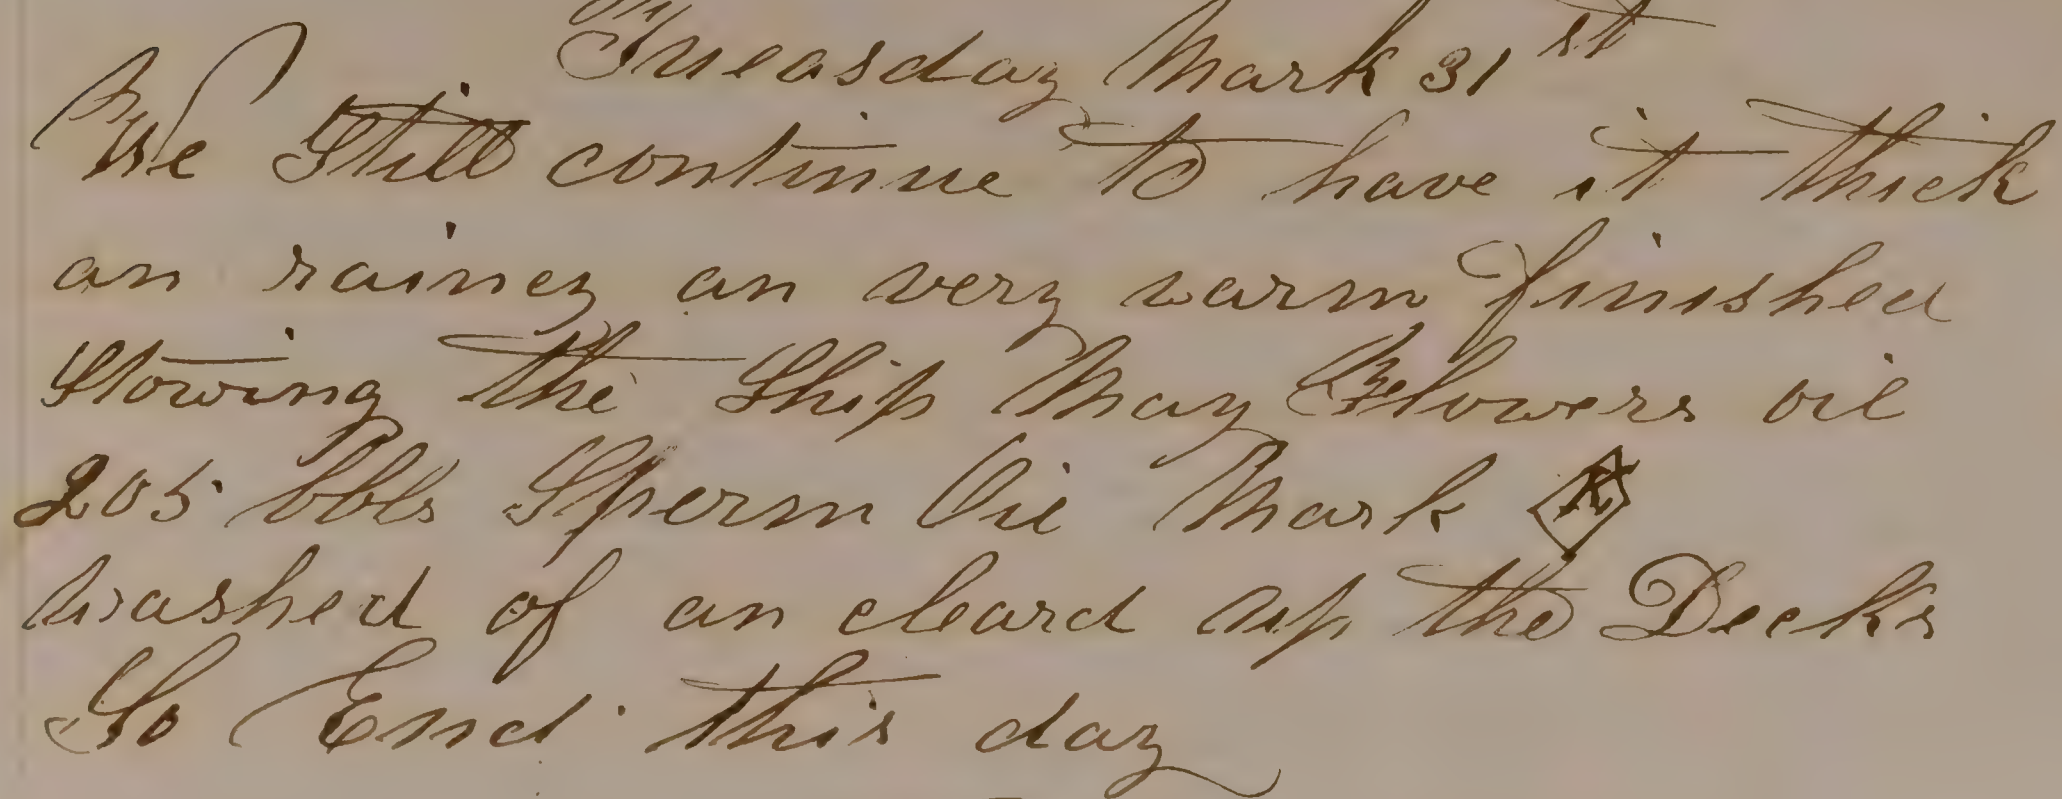 Tueasday Mark 31st
We Still continue to have it thick
an rainey an very warm finished
Stowing the Ship May Flowers oil
205 bbls Sperm Oil Mark K
washed of an cleard up the Decks
So End this day